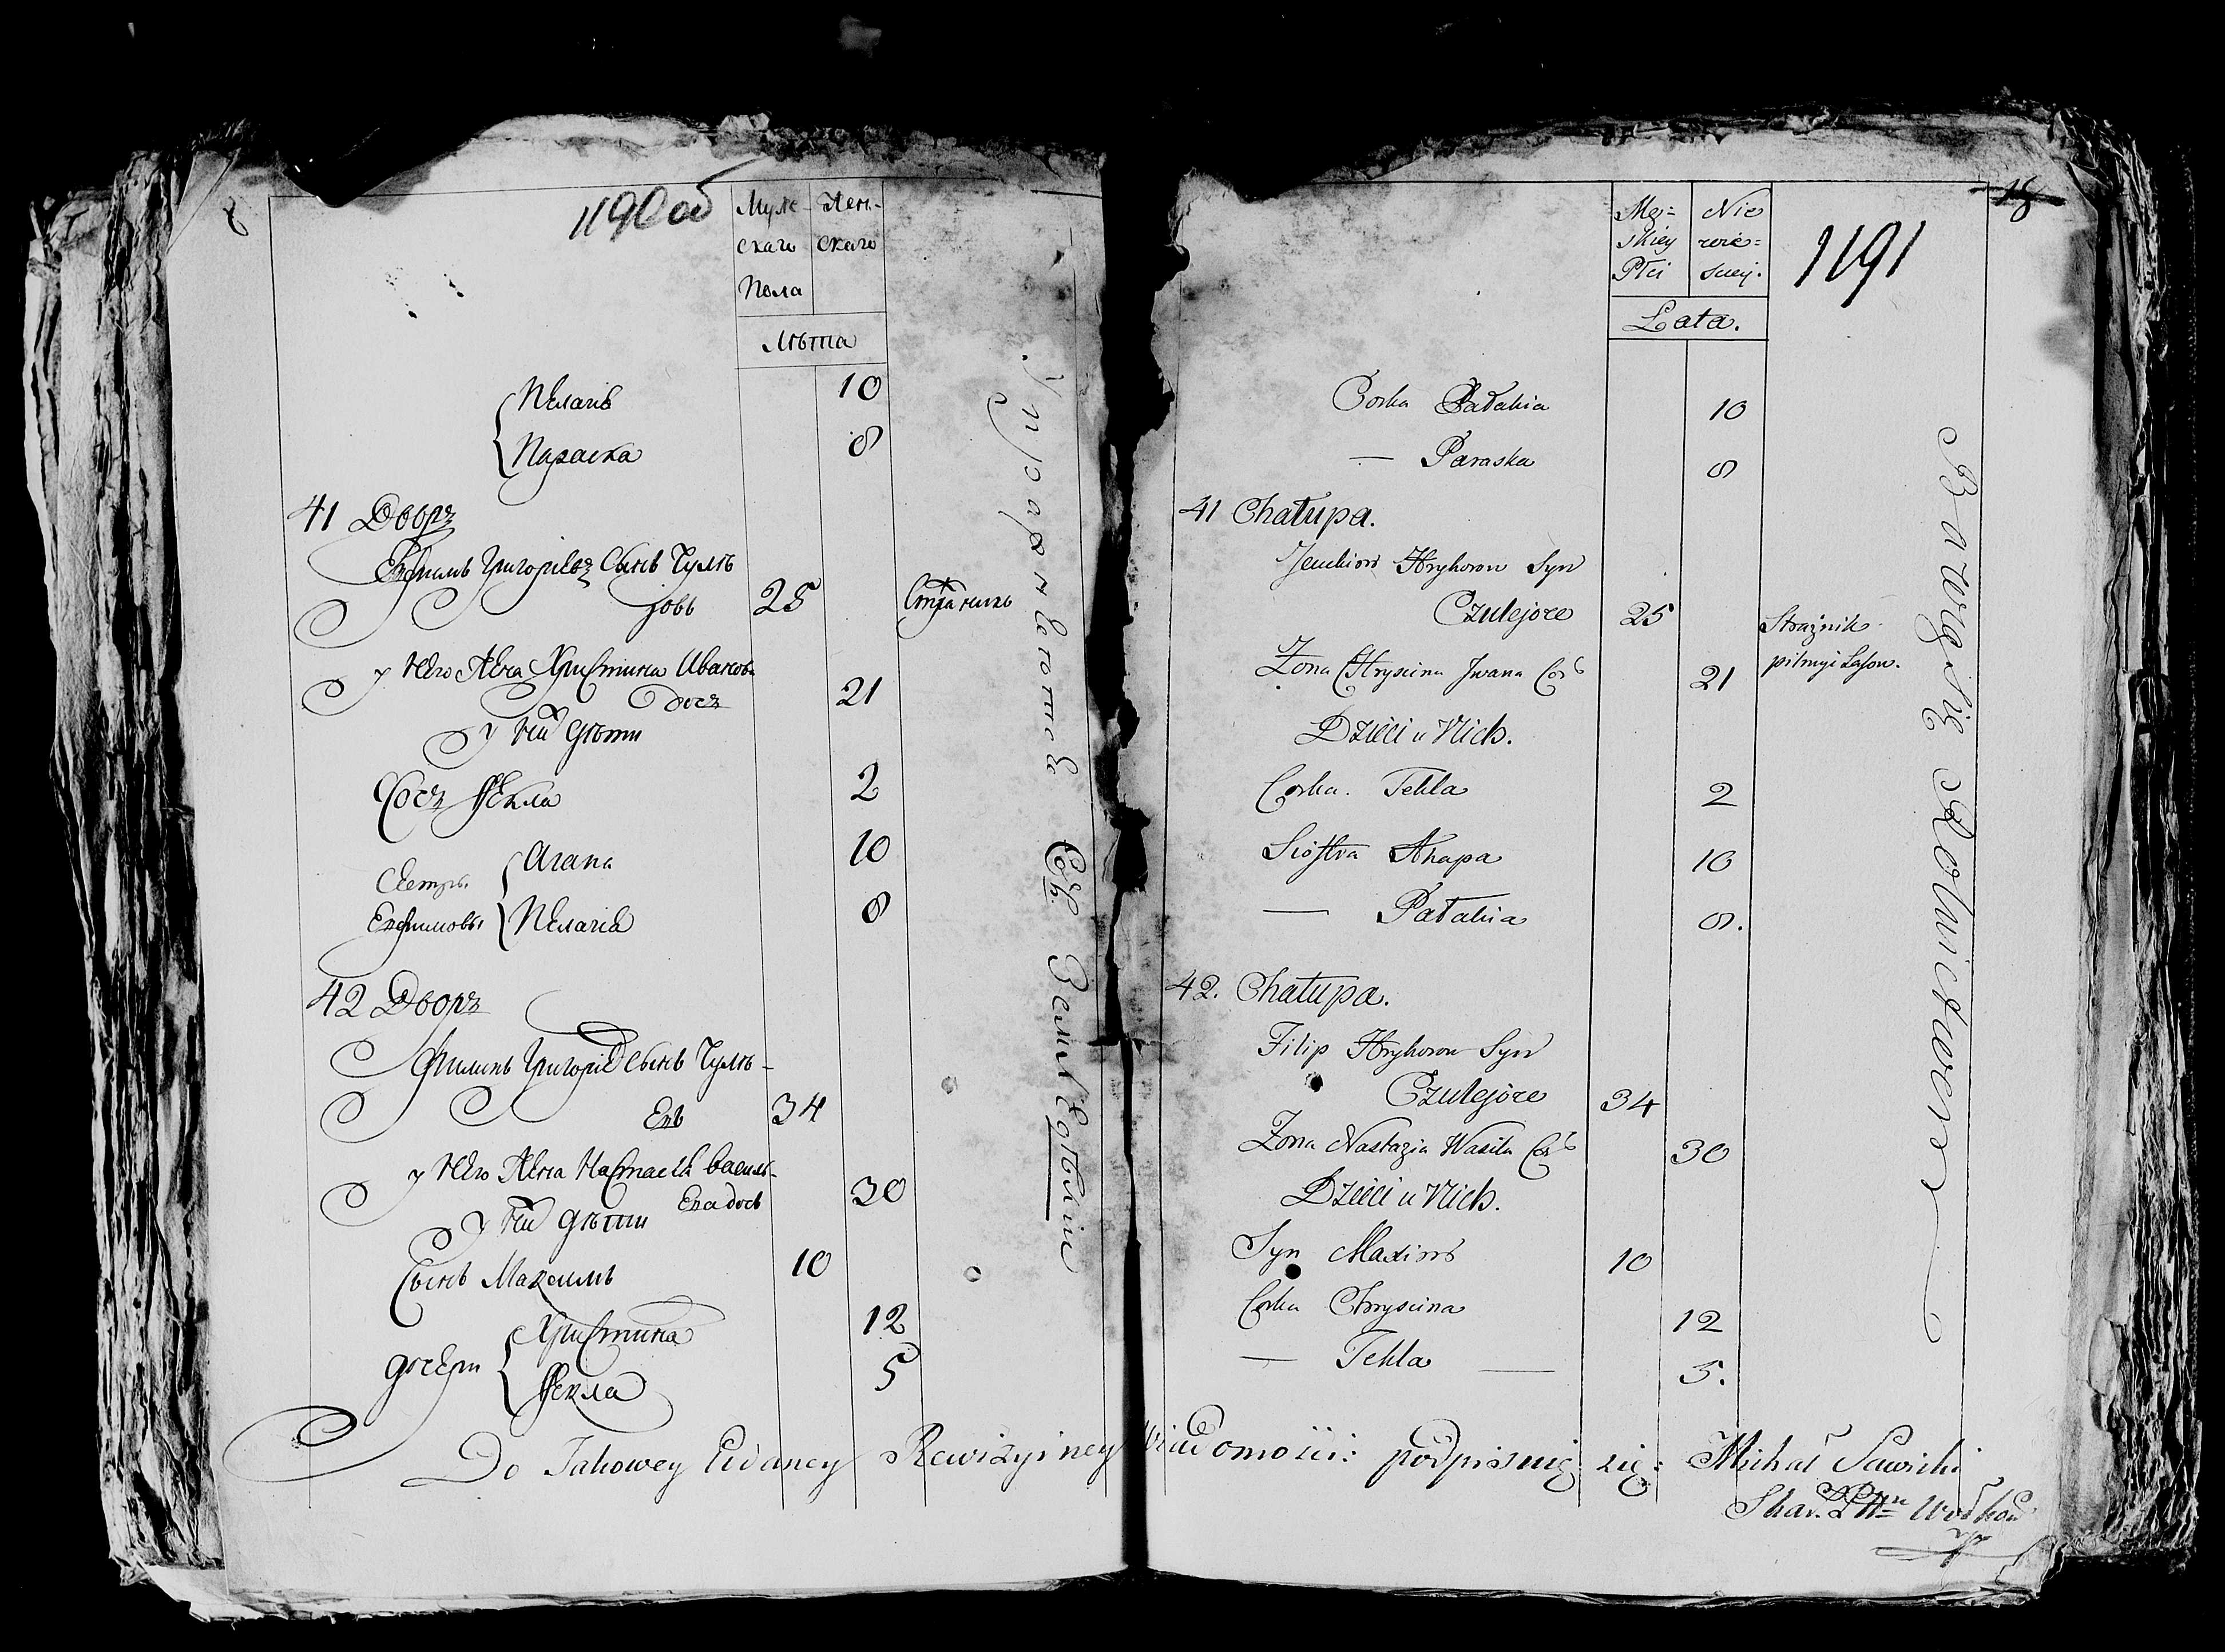 1190об
Муже-
скаго
Пола
Жен-
скаго
Лѣта
Пелагѣя 10
Параска 8
41 Дворъ
Ефимъ Григорьевъ Сынъ Чулѣ
іовъ 25 Стражникъ
у него Жена Христина Иванова
Дочь 21
у них дѣти
Дочь Фекла 2
Сестры Агапа 10
Ефимовы Пелагѣя 8
42 Дворъ
Филипъ Григорьевъ Сынъ Чулѣ-
евъ 34
у него Жена Настасья Василь-
ева дочь 30
у них дѣти
Сынъ Максимъ 10
дочери Христина 12
Фекла 5
1191
18
Męz=
skiey
Płci
Nie
wie=
sciey.
Lata.
Corka Pałahia 10
— Paraska 8
41 Chałupa.
Jeuchiom Hryhorow Syn
Czulejow 25 Strażnik
pilnyi Lasow.
Żona Chryscina Jwana Cor 21
Dzieci u Nich.
Corka. Tekla 2
Siostra Ahapa 10
— Pałahia 8.
42. Chałupa.
Filip Hryhorow Syn
Czulejow 34
Żona Nastazia Wasila Cor 30
Dzieci u Nich.
Syn Maxim 10
Corka Chryscina 12
— Tekla — 5.
Do Takowey Podaney Rewizyiney Wiadomości: podpisuię się: Michał Sawicki